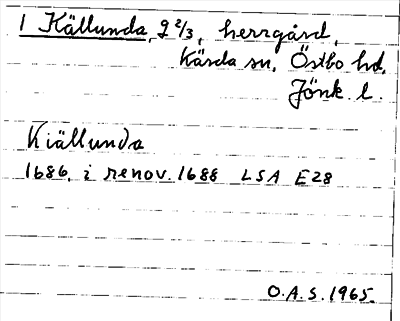 1 Källunda, 9 2/3, herrgård,
Kärda sn. Östbo hd.
Jönk. l.
Kiällunda
1686, i renov. 1688 LSA E28
O.A.S. 1965.